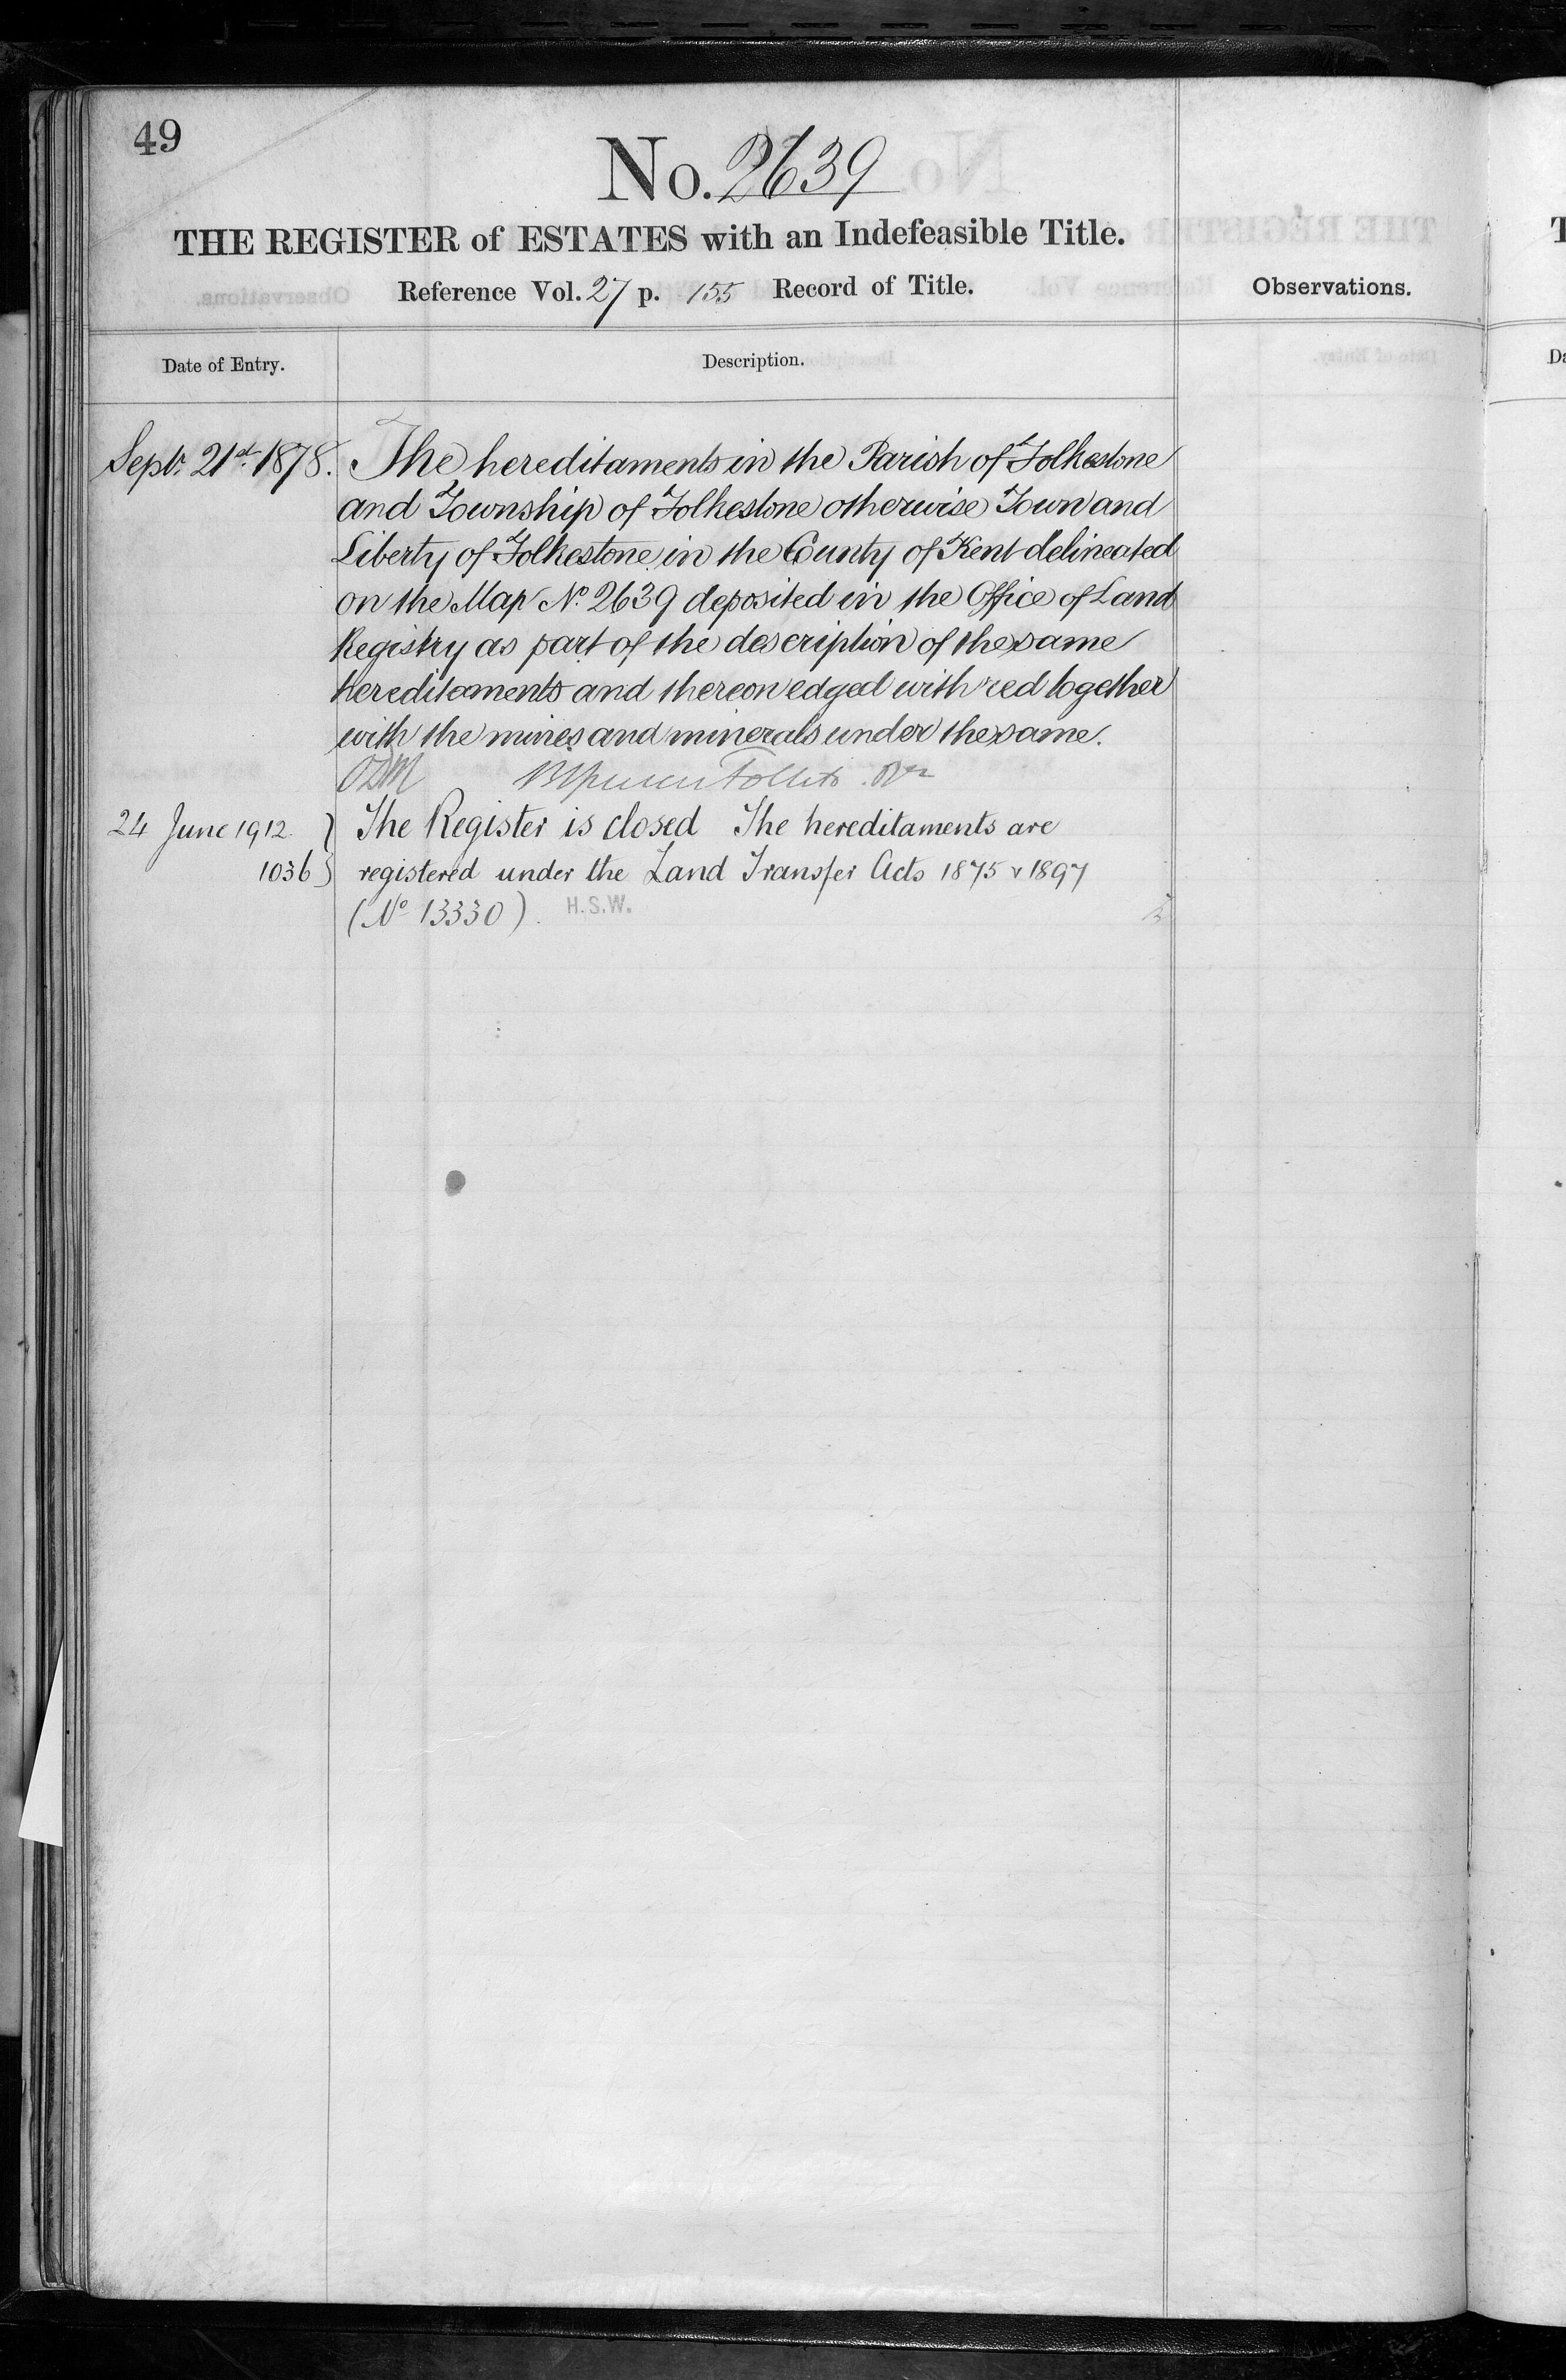 49
No. 2639
THE REGISTER of ESTATES with an Indefeasible Title.
Reference Vol. 27 p. 155 Record of Title.
Observations.
Date of Entry.
Description.
Sept. 21st 1878. The hereditaments in the Parish of Folkestone
and Township of Folkestone otherwise Town and
Liberty of Folkestone in the County of Kent delineated
on the Map No. 2639 deposited in the Office of Land
Registry as part of the description of the same
hereditaments and thereon edged with red together
with the mines and minerals under the same.
Follett
24 June 1912 } The Register is closed The hereditaments are
1036 } registered under the Land Transfer Acts 1875 & 1897
(No 13330). H.S.W.